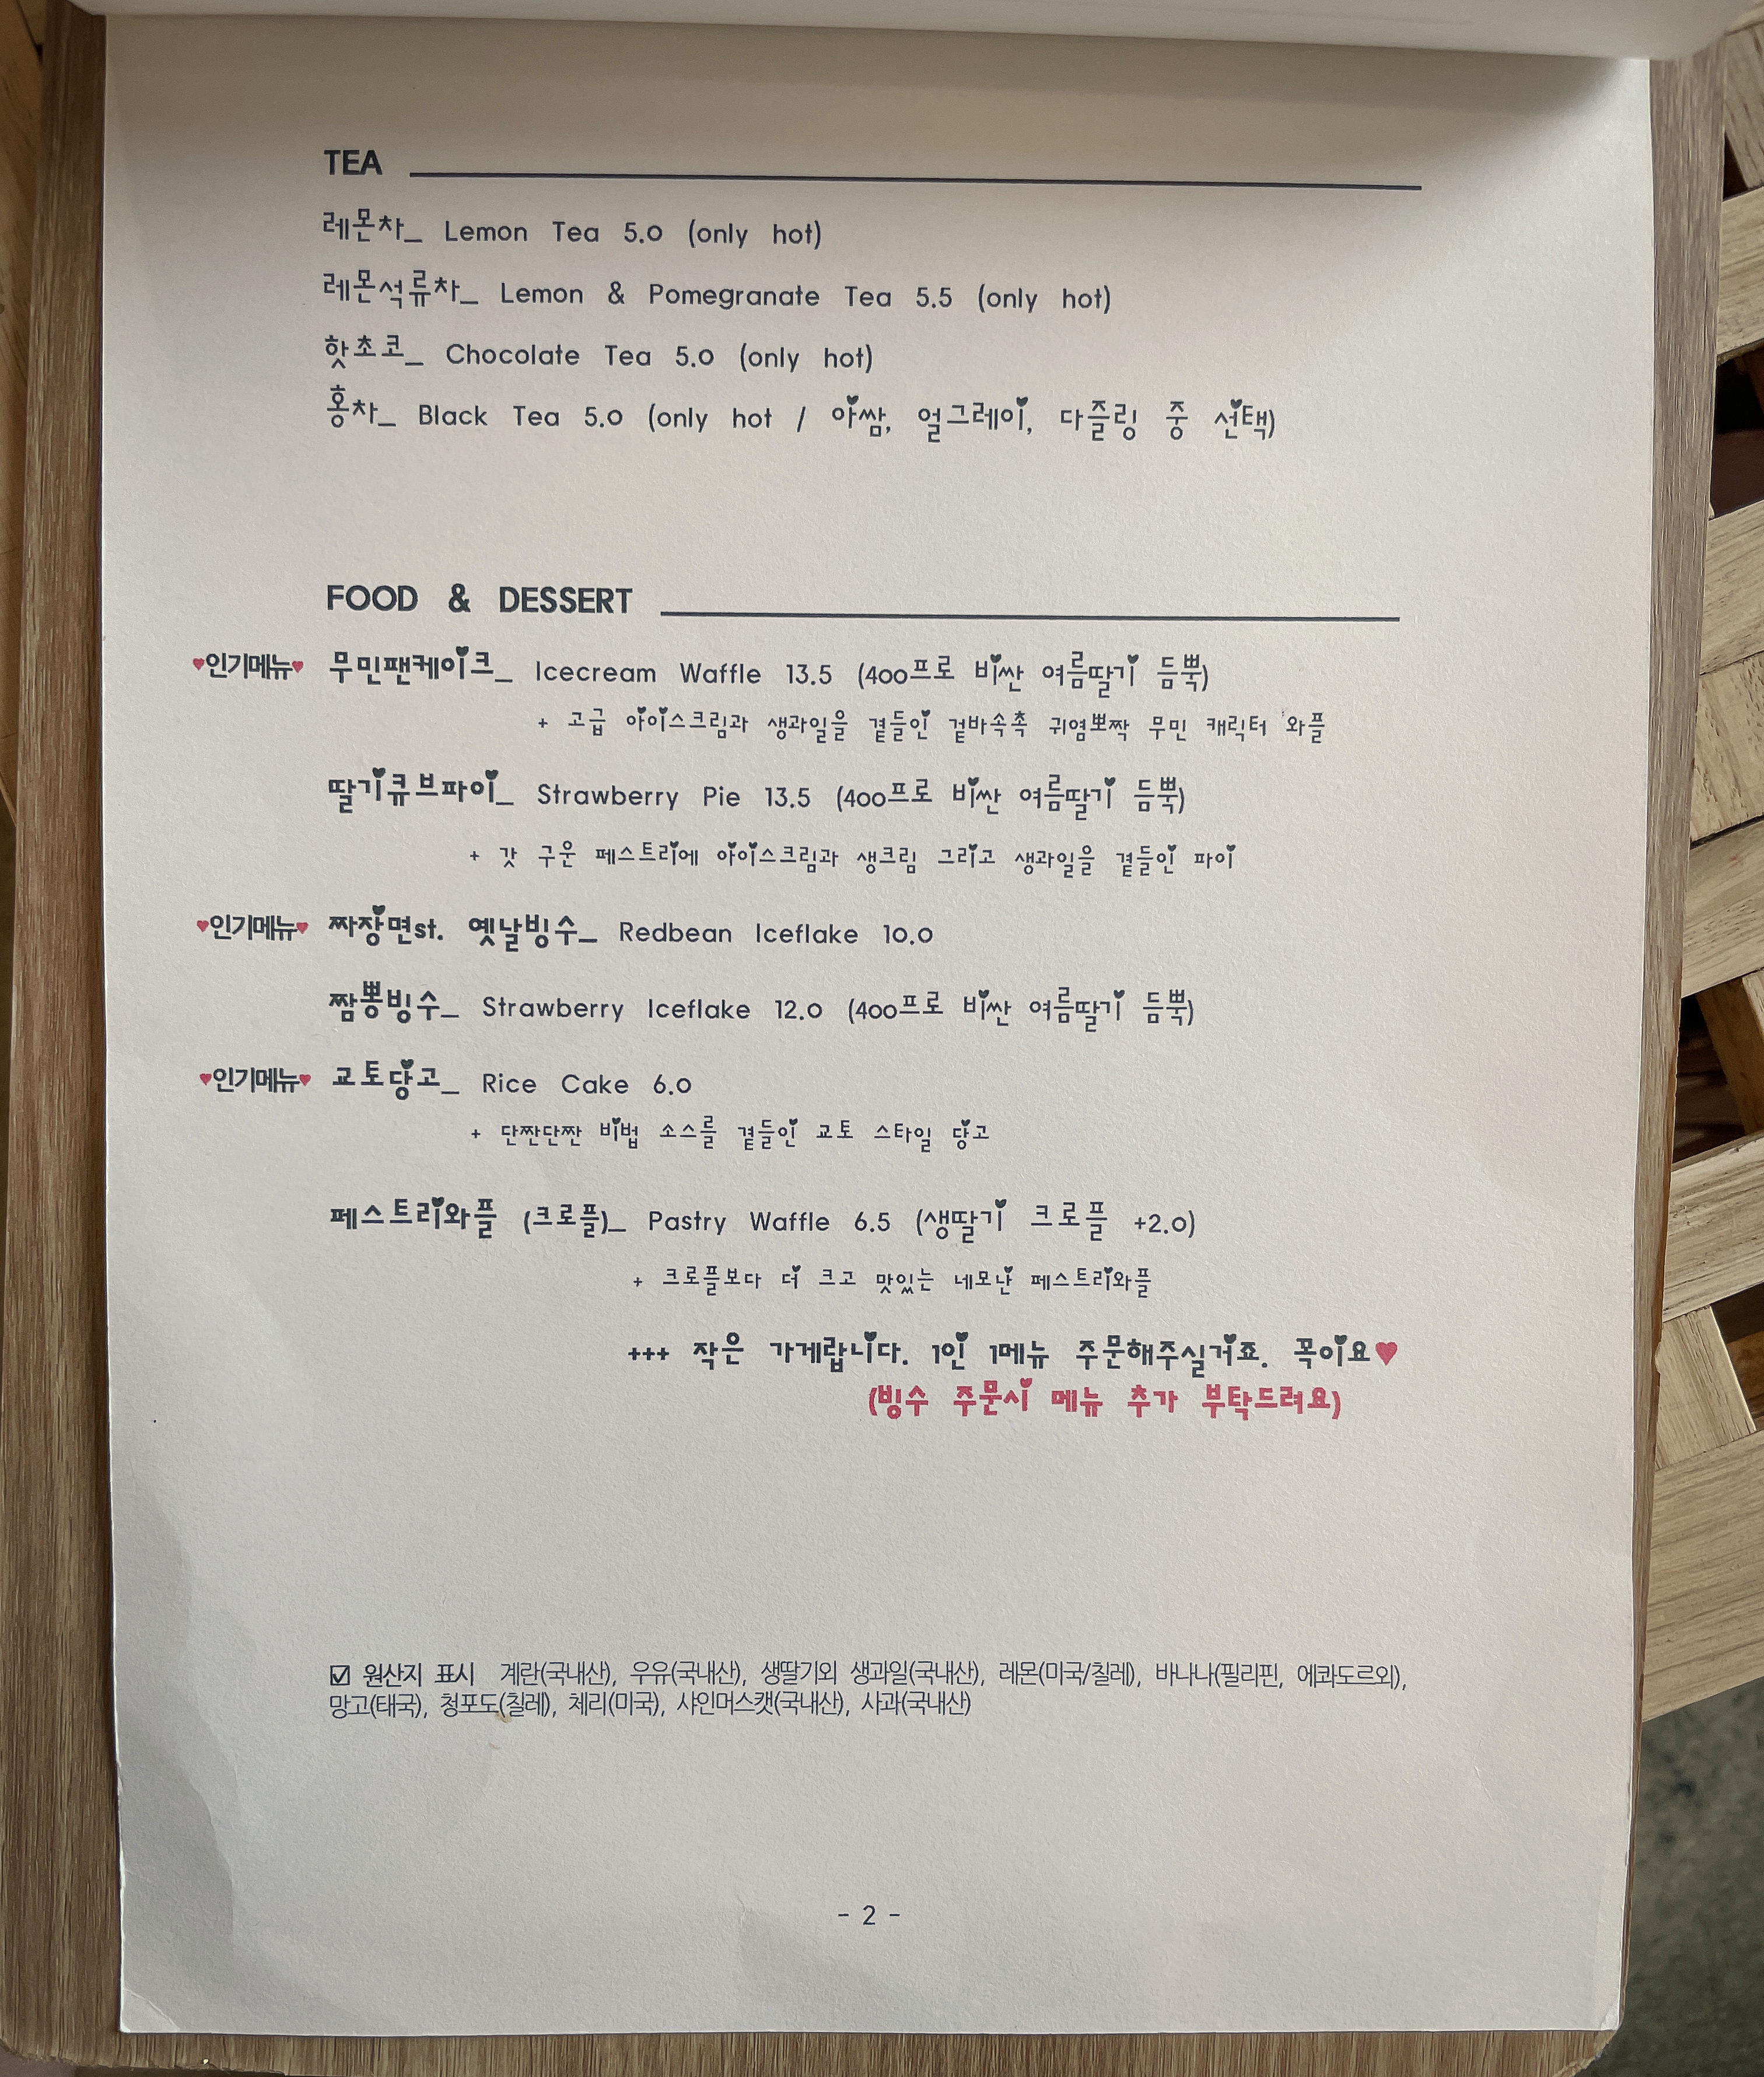 TEA
레몬차_ Lemon Tea 5.0 (only hot)
레몬석류차_ Lemon & Pomegranate Tea 5.5 (only hot)
핫초코_ Chocolate Tea 5.0 (only hot)
홍차_ Black Tea 5.0 (only hot / 아쌈, 얼그레이, 다즐링 중 선택)
FOOD & DESSERT
♥인기메뉴♥ 무민팬케이크_ Icecream Waffle 13.5 (400프로 비싼 여름딸기 듬뿍)
+ 고급 아이스크림과 생과일을 곁들인 겉바속촉 귀염뽀짝 무민 캐릭터 와플
딸기큐브파이_ Strawberry Pie 13.5 (400프로 비싼 여름딸기 듬뿍)
+ 갓 구운 페스트리에 아이스크림과 생크림 그리고 생과일을 곁들인 파이
♥인기메뉴♥ 짜장면st. 옛날빙수_ Redbean Iceflake 10.0
짬뽕빙수_ Strawberry Iceflake 12.0 (400프로 비싼 여름딸기 듬뿍)
♥인기메뉴♥ 교토당고_ Rice Cake 6.0
+ 단짠단짠 비법 소스를 곁들인 교토 스타일 당고
페스트리와플 (크로플)_ Pastry Waffle 6.5 (생딸기 크로플 +2.0)
+ 크로플보다 더 크고 맛있는 네모난 페스트리와플
+++ 작은 가게랍니다. 1인 1메뉴 주문해주실거죠. 꼭이요♥
(빙수 주문시 메뉴 추가 부탁드려요)
☑ 원산지 표시 계란(국내산), 우유(국내산), 생딸기외 생과일(국내산), 레몬(미국/칠레), 바나나(필리핀, 에콰도르외),
망고(태국), 청포도(칠레), 체리(미국), 샤인머스캣(국내산), 사과(국내산)
- 2 -